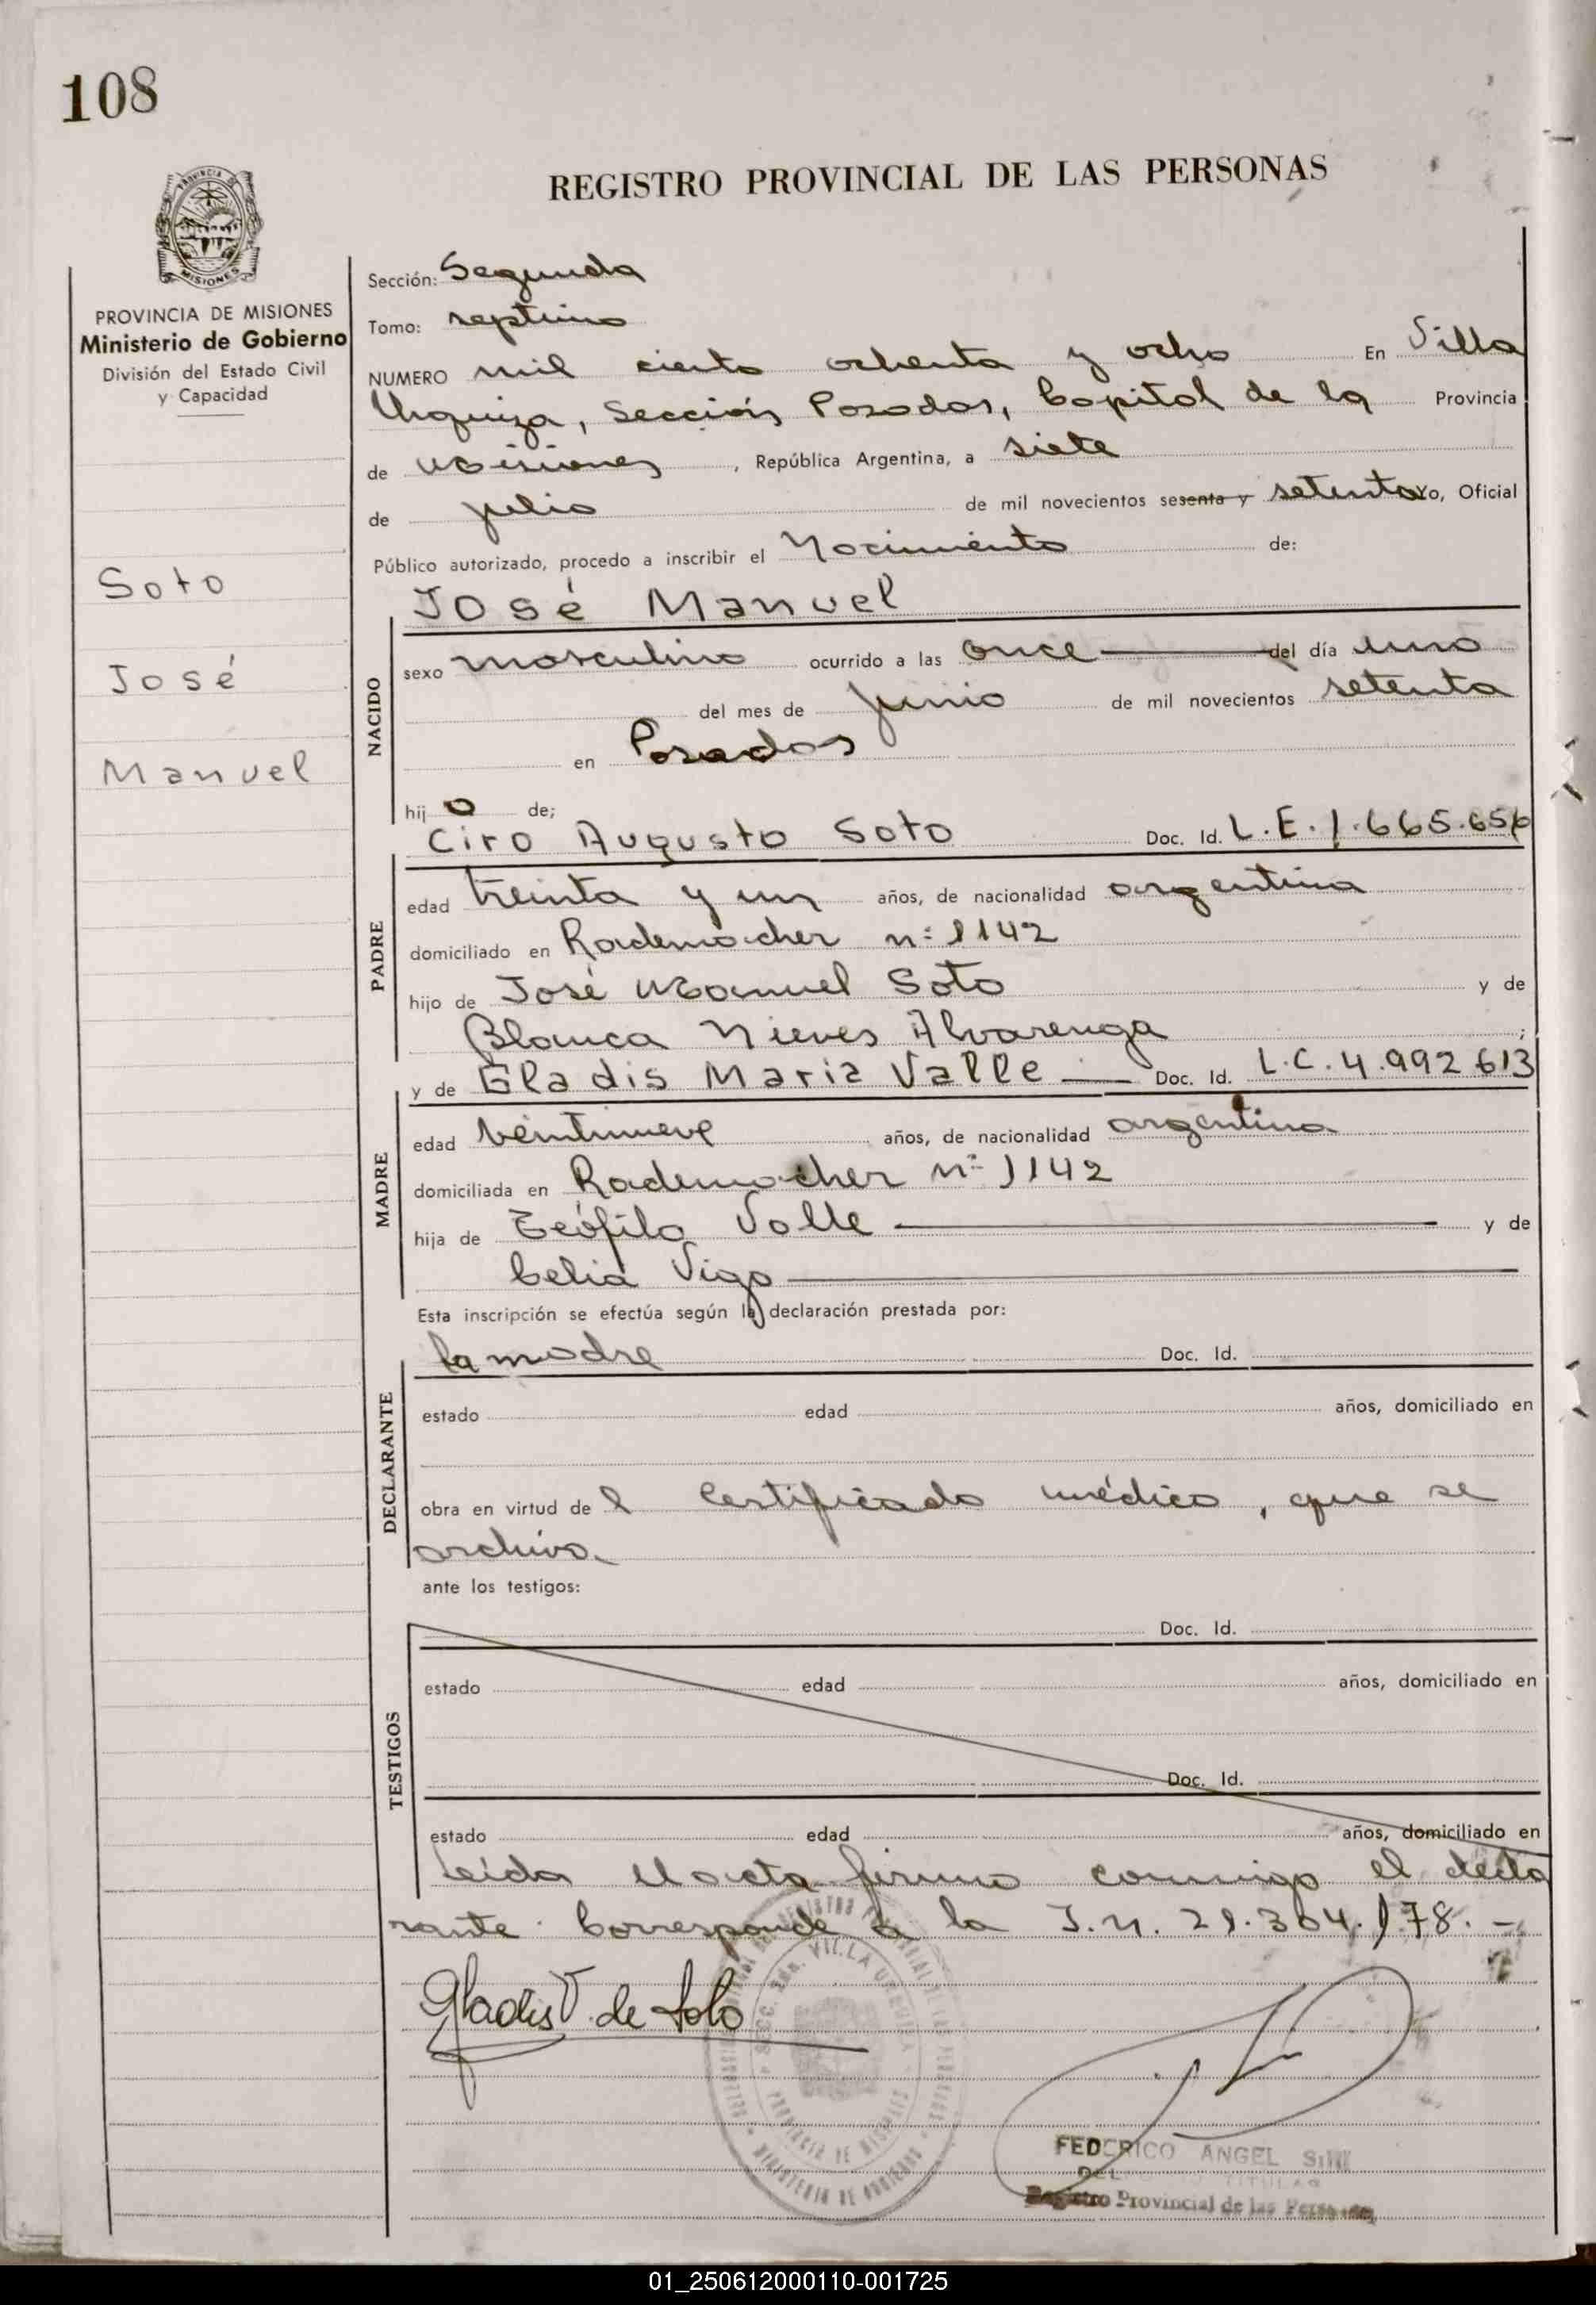 108
REGISTRO PROVINCIAL DE LAS PERSONAS
PROVINCIA DE MISIONES
Ministerio de Gobierno
División del Estado Civil
y Capacidad
Soto
José
Manuel
Sección: Segunda
Tomo: septimo
NUMERO mil ciento ochenta y ocho En Villa
Urquiza, Sección Posadas, Capital de la Provincia
de Misiones, República Argentina, a siete
de julio de mil novecientos sesenta y setenta Yo, Oficial
Público autorizado, procedo a inscribir el Nacimiento de:
José Manuel
NACIDO
sexo masculino ocurrido a las once del día uno
del mes de junio de mil novecientos setenta
en Posadas
hijo de;
Ciro Augusto Soto Doc. Id. L.E. 1.665.656
PADRE
edad treinta y un años, de nacionalidad argentina
domiciliado en Rademacher nº 1142
hijo de José Manuel Soto y de
Blanca Nieves Alvarenga ;
y de Gladis Maria Valle Doc. Id. L.C. 4.992.613
MADRE
edad veintinueve años, de nacionalidad argentina
domiciliada en Rademacher nº 1142
hija de Teófilo Valle y de
Celia Vigo
Esta inscripción se efectúa según la declaración prestada por:
la madre Doc. Id.
DECLARANTE
estado edad años, domiciliado en
obra en virtud del Certificado médico, que se
archiva.
ante los testigos:
Doc. Id.
TESTIGOS
estado edad años, domiciliado en
Doc. Id.
estado edad años, domiciliado en
Leída el acta firma conmigo el decla
rante. Corresponde a la I.N. 21.304.178. -
Gladis V. de Soto
FEDERICO ANGEL
TITULAR
Registro Provincial de las Personas
01_250612000110-001725